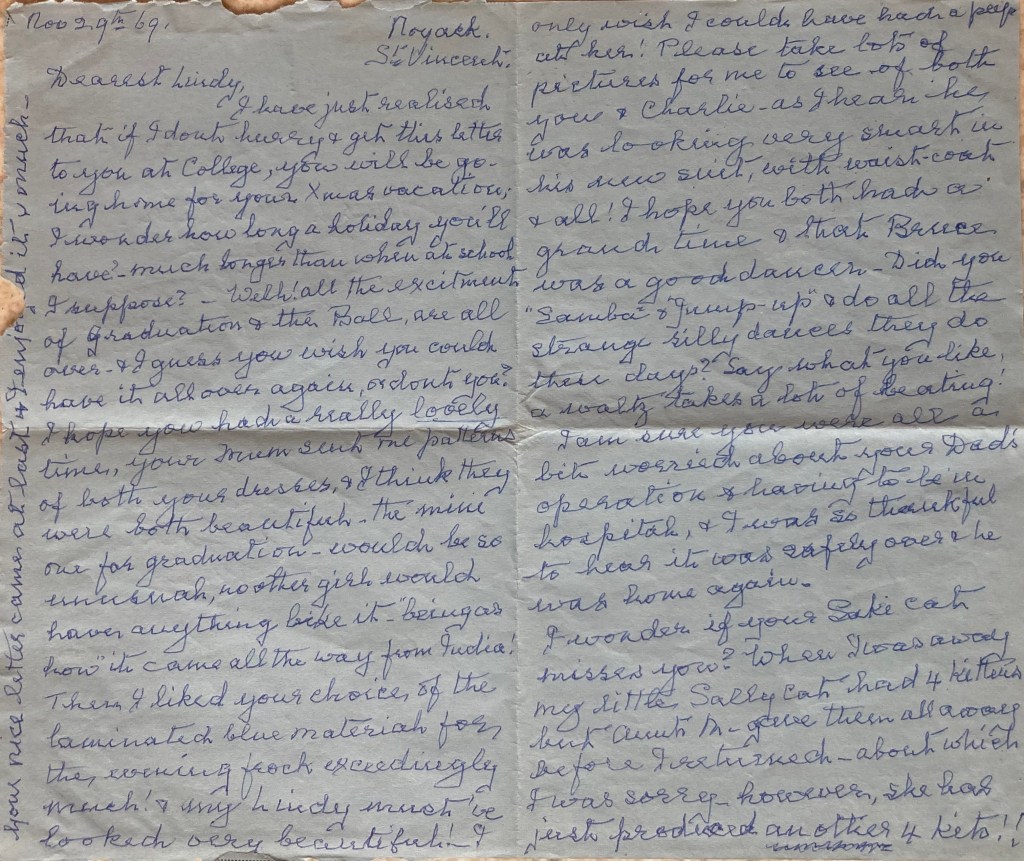 Nov 29th 69.
Noyack.
St Vincent.
Dearest Lindy,
I have just realised
that if I dont hurry & get this letter
to you at College, you will be go-
ing home for your Xmas vacation,
I wonder how long a holiday you'll
have - much longer than when at school
I suppose? - Well! all the excitment
of graduation & the Ball, are all
over - & I guess you wish you could
have it all over again, or dont you?
I hope you had a really lovely
time, your Mum sent me patterns
of both your dresses, & I think they
were both beautiful - the mini
one for graduation - would be so
unusual, no other girl would
have anything like it - "being as
how" it came all the way from India!
Then I liked your choice, of the
laminated blue material for
the, evening frock exceedingly
much! & my Lindy must 've
looked very beautiful! - I
only wish I could have had a peep
at her! Please take lots of
pictures for me to see of both
you & Charlie - as I hear he
was looking very smart in
his new suit, with waist-coat
& all! I hope you both had a
grand time & that Bruce
was a good dancer - Did you
"Samba" & "Jump-up" & do all the
strange silly dances they do
these days? Say what you like,
a waltz takes a lot of beating!
I am sure you were all a
bit worried about your Dad's
operation & having to be in
hospital, & I was so thankful
to hear it was safely over & he
was home again.
I wonder if your Saki cat
misses you? When I was away
my little Sally cat had 4 kittens
but Aunt M - gave them all away
before I returned - about which
I was sorry - however, she has
just produced another 4 kits!!
Your nice letter came at last & I enjoyed it v much -